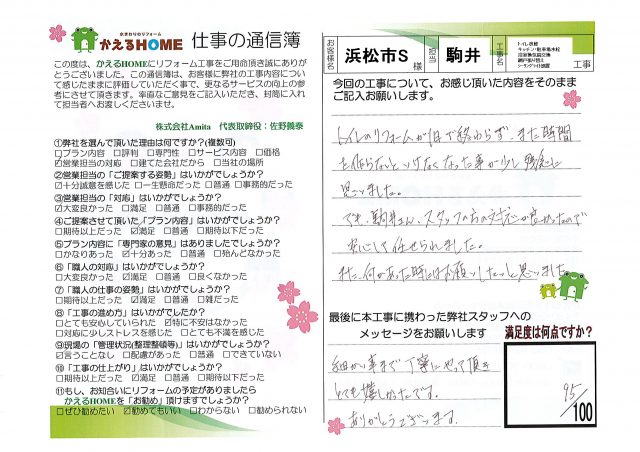 水まわりのリフォーム
かえるHOME 仕事の通信簿
この度は、かえるHOMEにリフォーム工事をご用命頂き誠にありがとうございました。この通信簿は、お客様に弊社の工事内容について
感じたままに評価していただく事で、更なるサービスの向上の参
考にさせて頂きます。率直なご意見をご記入いただき、封筒に入れ
て担当者へお渡しくださいませ。
株式会社Amita 代表取締役：佐野義泰
①弊社を選んで頂いた理由は何ですか?(複数可)
□プラン内容 □評判 □専門性 □サービス内容 □価格
☑営業担当の対応 □建てた会社だから □当社の場所
②営業担当の「ご提案する姿勢」はいかがでしょうか?
☑十分誠意を感じた □一生懸命だった □普通 □事務的だった
③営業担当の「対応」はいかがでしょうか?
☑大変良かった □満足 □普通 □事務的だった
④ご提案させて頂いた「プラン内容」はいかがでしょうか?
□期待以上だった ☑満足 □普通 □期待以下だった
⑤プラン内容に「専門家の意見」はありましたでしょうか?
□かなりあった ☑十分あった □普通 □殆んどなかった
⑥「職人の対応」はいかがでしょうか?
□大変良かった ☑満足 □普通 □良くなかった
⑦「職人の仕事の姿勢」はいかがでしょうか?
□期待以上だった ☑満足 □普通 □雑だった
⑧「工事の進め方」はいかがでしたか?
□とても安心していられた ☑特に不安はなかった
□対応に少しストレスを感じた □とても不満を感じた
⑨現場の「管理状況(整理整頓等)」はいかがでしょうか?
☑言うことなし □配慮があった □普通 □できていない
⑩「工事の仕上がり」はいかがでしょうか?
□期待以上だった ☑満足 □普通 □期待以下だった
⑪もし、お知合いにリフォームの予定がありましたら
かえるHOMEを「お勧め」頂けますでしょうか?
□ぜひ勧めたい ☑勧めてもいい □わからない □勧められない
お客様名 浜松市S 様 担当 駒井 工事名 トイレ改修 工事
今回の工事について、お感じ頂いた内容をそのまま
ご記入お願いします。
トイレのリフォームが1日で終わらず、また時間
を作らないといけなくなった事が少し残念に
思いました。
でも、駒井さん、スタッフの方の対応が良かったので
安心して任せられました。
また、何かあった時にはお願いしたいと思いました
最後に本工事に携わった弊社スタッフへの
メッセージをお願いします
細かい事まで丁寧にやって頂き
とても嬉しかったです。
ありがとうございます。
満足度は何点ですか?
95/100